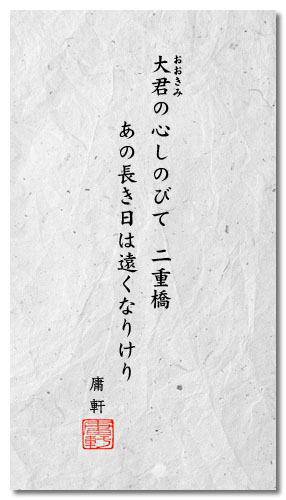 おおきみ
大君の心しのびて 二重橋
あの長き日は遠くなりけり
庸軒